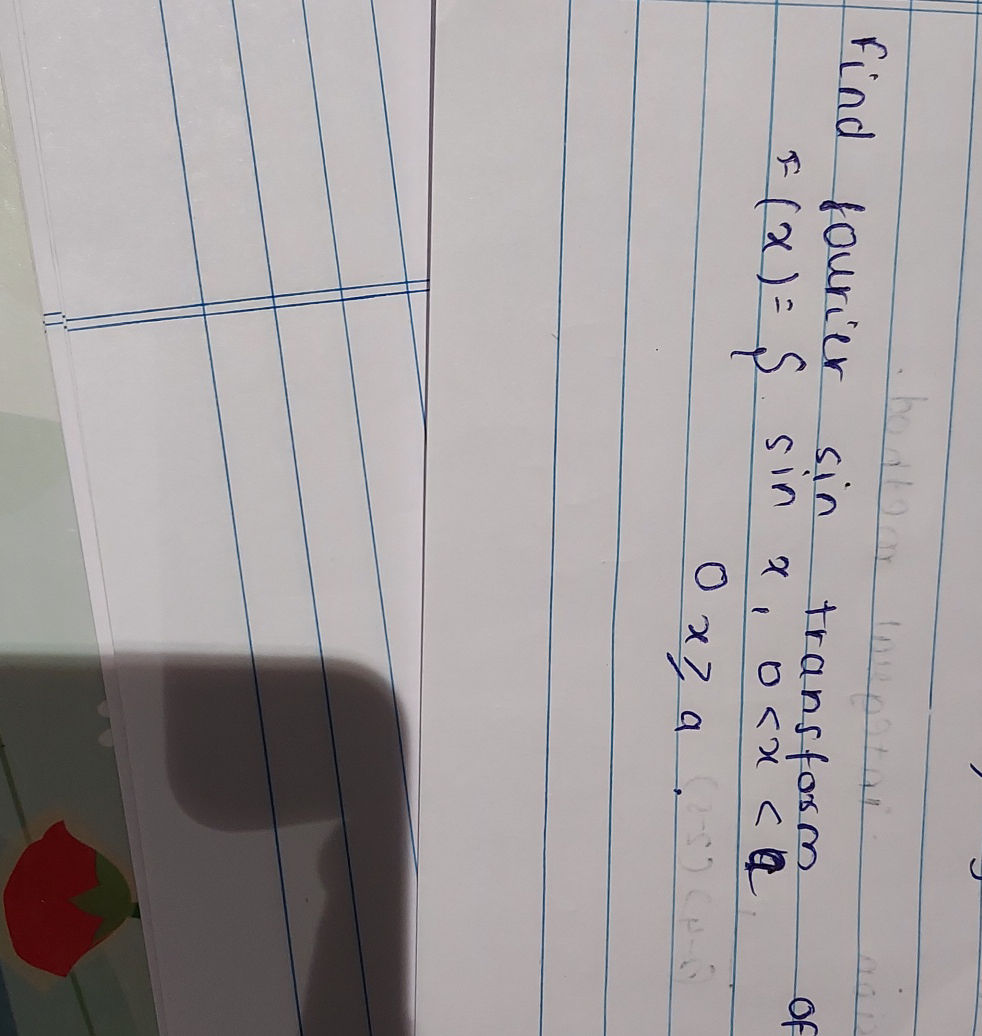 Find fourier sin transform of
F(x) = { sin x, 0 < x < a
0 x ≥ a.